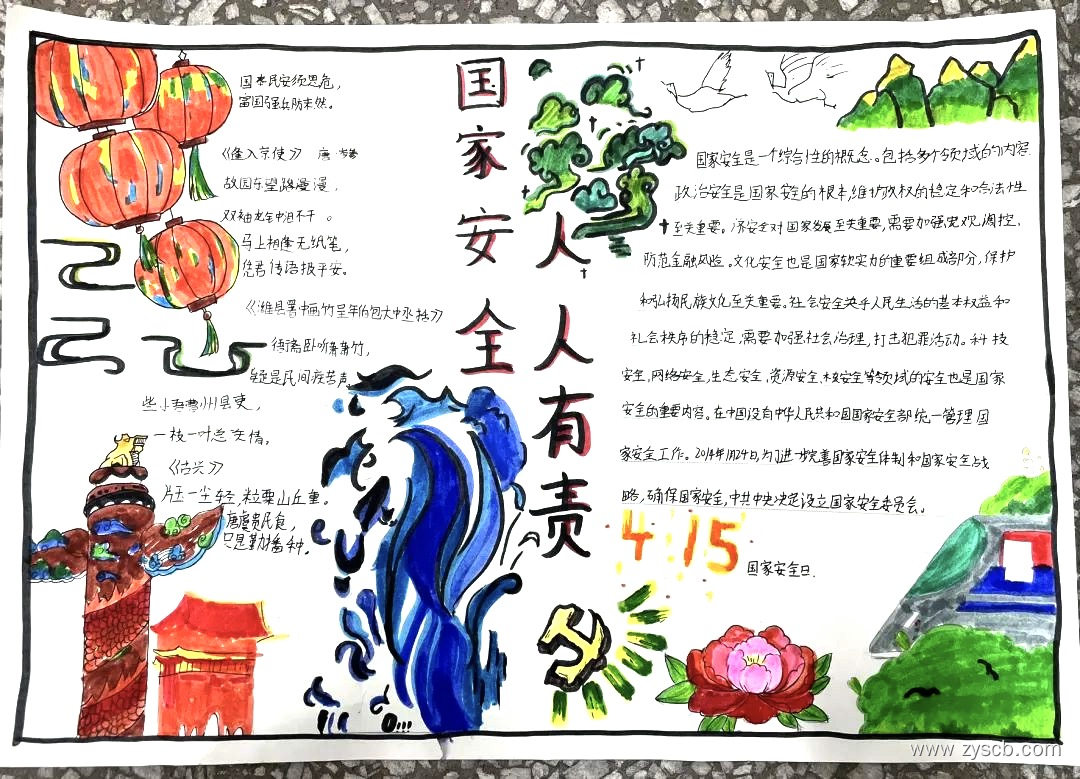 国家安全
人人有责
国泰民安须思危，
富国强兵防未然。
《逢入京使》 唐 岑参
故园东望路漫漫，
双袖龙钟泪不干。
马上相逢无纸笔，
凭君传语报平安。
《潍县署中画竹呈年伯包大中丞括》
衙斋卧听萧萧竹，
疑是民间疾苦声
些小吾曹州县吏，
一枝一叶总关情，
《估兴》
片玉一尘轻，粒粟山丘重。
唐虞贵民食，
只是勤播种。
国家安全是一个综合性的概念。包括多个领域的内容.
政治安全是国家安全的根本，维护政权的稳定和合法性
至关重要。济安全对国家发展至关重要，需要加强宏观调控，
防范金融风险。文化安全也是国家软实力的重要组成部分，保护
和弘扬民族文化至关重要。社会安全关乎人民生活的基本权益和
社会秩序的稳定，需要加强社会治理，打击犯罪活动。科技
安全，网络安全，生态安全，资源安全，核安全等领域的安全也是国家
安全的重要内容。在中国设有中华人民共和国国家安全部统一管理国
家安全工作。2014年1月24日，为了进一步完善国家安全体制和国家安全战
略，确保国家安全，中共中央决定设立国家安全委员会。
4 15
国家安全日.
www.zyscb.com